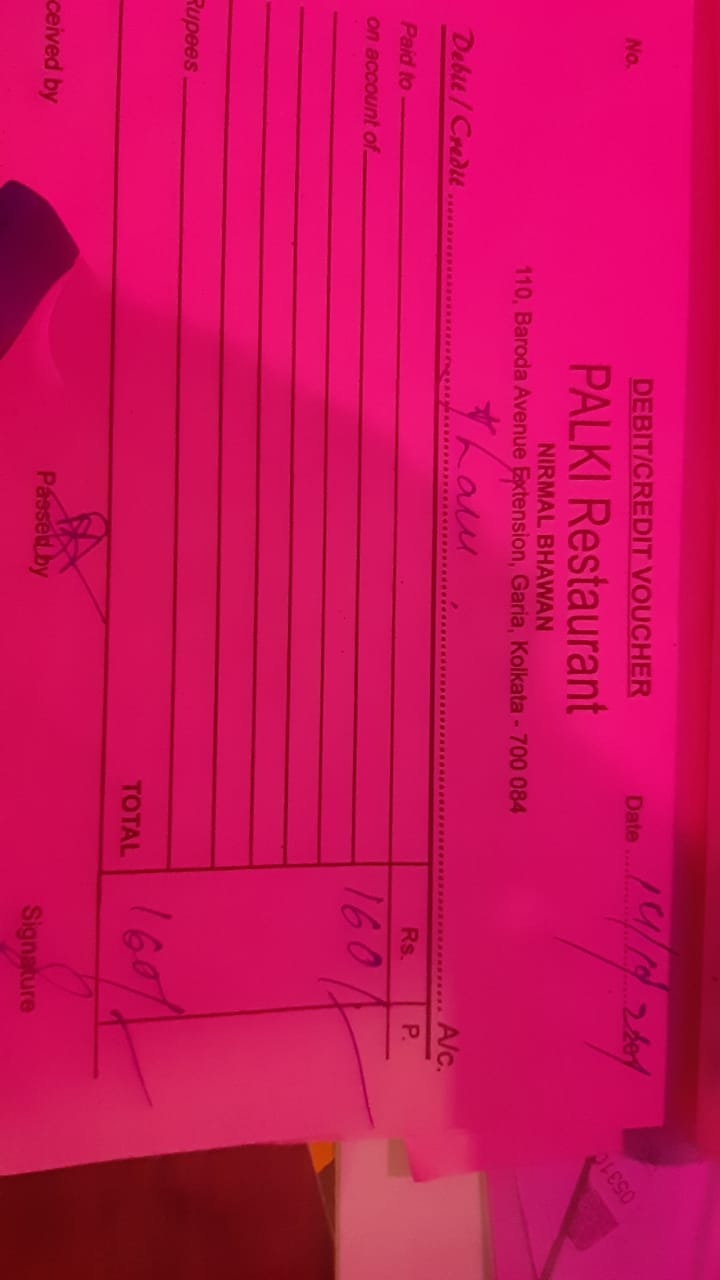 DEBIT/CREDIT VOUCHER
No. Date
PALKI Restaurant
NIRMAL BHAWAN
110, Baroda Avenue Extension, Garia, Kolkata - 700 084
Debit / Credit A/c.
Paid to Rs. P.
on account of 160/-
Rupees
TOTAL 160/-
ceived by Passed by Signature
0531